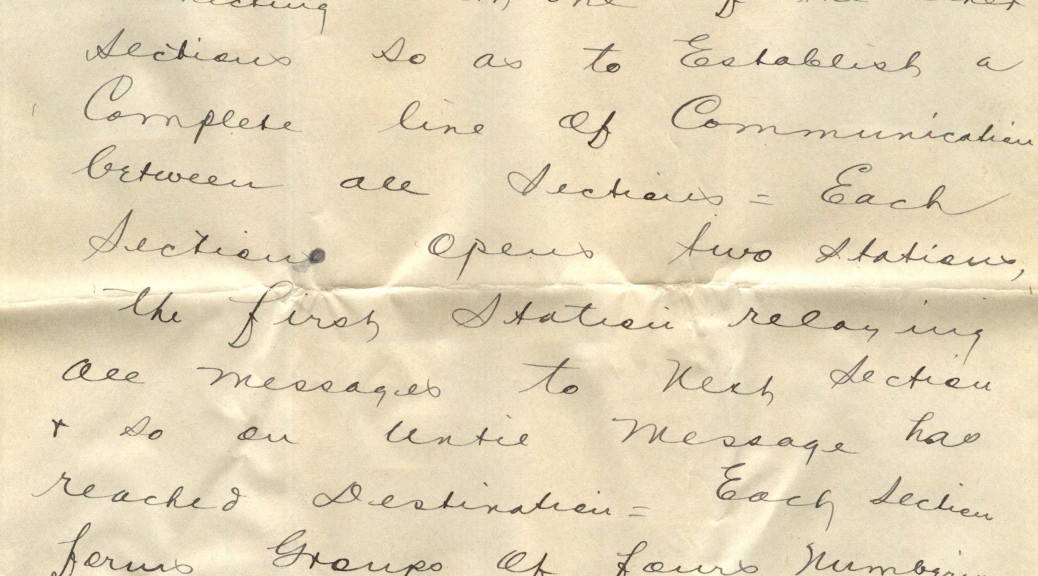 Sections so as to Establish a
Complete line of Communication
between all Sections = Each
Sections opens two stations,
the first Station relaying
all messages to Next Section
+ so on Until Message has
reached Destination = Each Section
forms Groups of fours